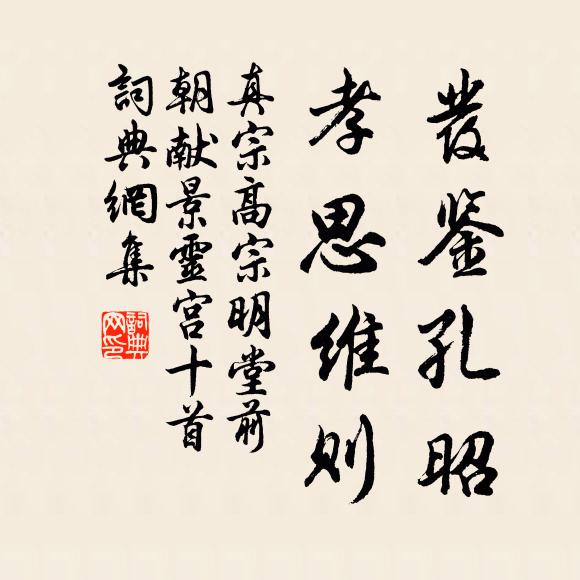 發鉴孔昭
孝思維则
真宗高宗明堂前
朝献景靈宫十首
詞典網集
詞典
网印